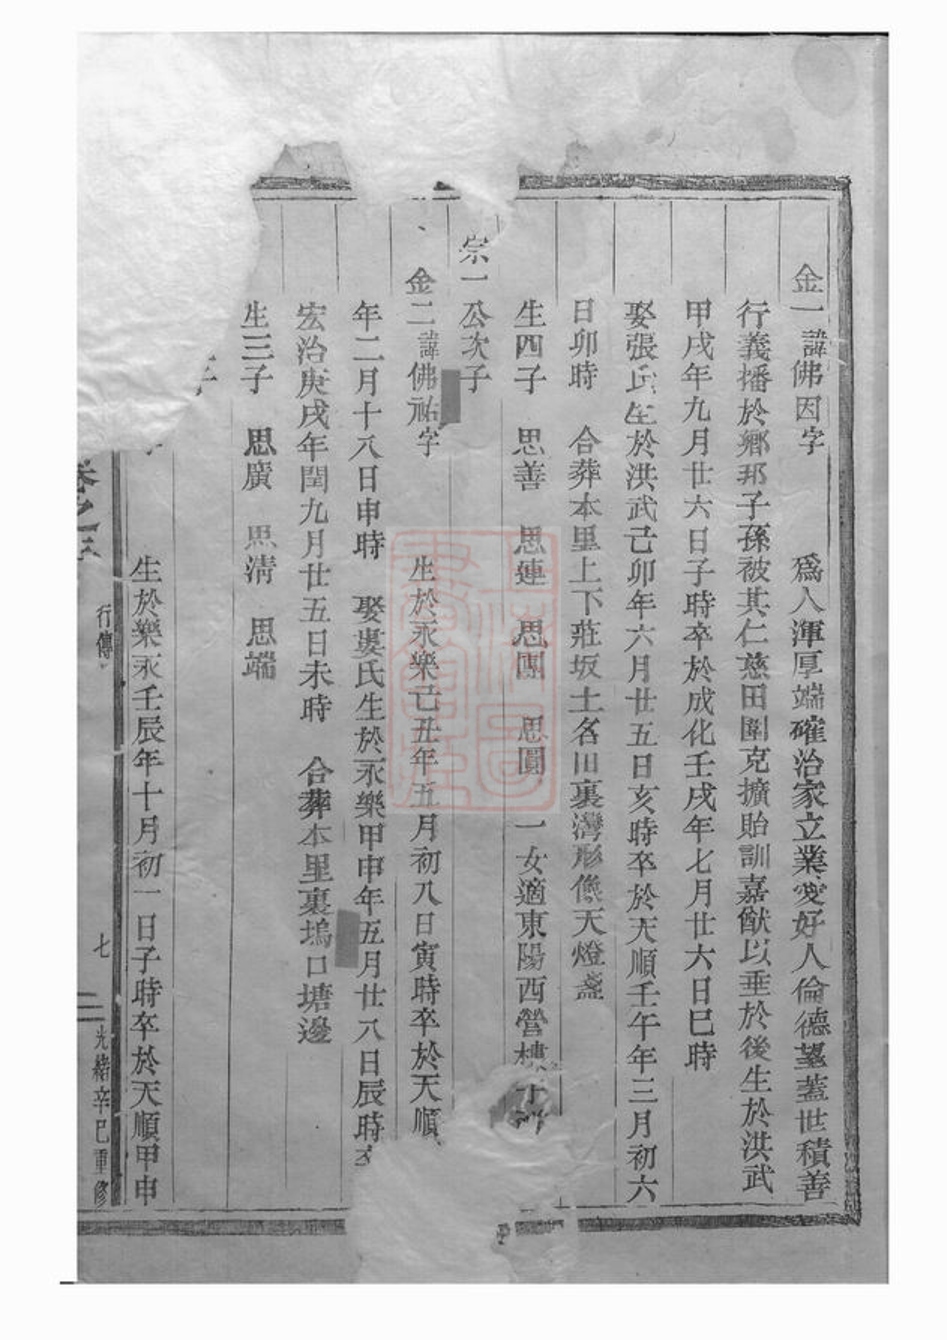 金一諱佛因字 爲人渾厚端確治家立業愛好人倫德望蓋世積善
行義播於鄉邦子孫被其仁慈田園克擴貽訓嘉猷以垂於後生於洪武
甲戌年九月廿六日子時卒於成化壬戌年七月廿六日巳時
娶張氏生於洪武己卯年六月廿五日亥時卒於天順壬午年三月初六
日卯時 合葬本里上下莊坂土名旧裏灣形像天燈盞
生四子 思善 思連 思團 思圓 一女適東陽西營樓
宗一公次子
金二諱佛祐字 生於永樂己丑年五月初八日寅時卒於天順
年二月十八日申時 娶婁氏生於永樂甲申年五月廿八日辰時
宏治庚戌年閏九月廿五日未時 合葬本里裏塢口塘邊
生三子 思廣 思淸 思端
子
生於樂永壬辰年十月初一日子時卒於天順甲申
卷之 行傳 七 光緒辛巳重修